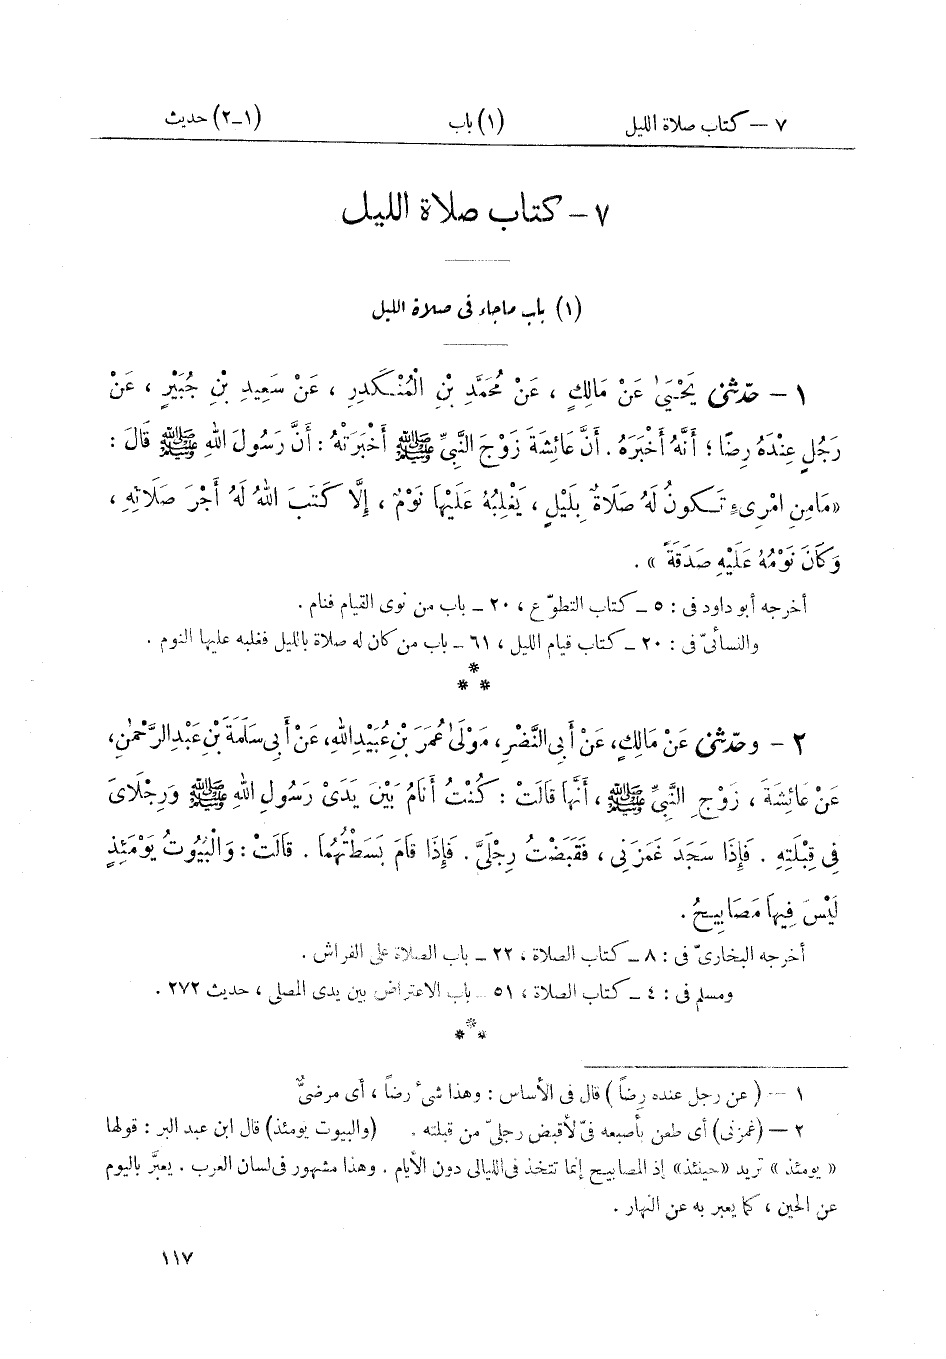 ٧ – كتاب صلاة الليل (١) باب (١–٢) حديث
٧ – كتاب صلاة الليل
(١) باب ماجاء فى صلاة الليل
١ – حدّثنى يَحْيَىٰ عَنْ مَالِكٍ ، عَنْ مُحَمَّدِ بْنِ الْمُنْكَدِرِ ، عَنْ سَعِيدِ بْنِ جُبَيْرٍ ، عَنْ
رَجُلٍ عِنْدَهُ رِضًا ؛ أَنَّهُ أَخْبَرَهُ . أَنَّ عَائِشَةَ زَوْجَ النَّبِيِّ ﷺ أَخْبَرَتْهُ : أَنَّ رَسُولَ اللهِ ﷺ قَالَ :
«مَامِنِ امْرِىءٍ تَكُونُ لَهُ صَلَاةٌ بِلَيْلٍ ، يَغْلِبُهُ عَلَيْهَا نَوْمٌ ، إِلَّا كَتَبَ اللهُ لَهُ أَجْرَ صَلَاتِهِ ،
وَكَانَ نَوْمُهُ عَلَيْهِ صَدَقَةً » .
أخرجه أبو داود فى : ٥ – كتاب التطوّع ، ٢٠ – باب من نوى القيام فنام .
والنسائىّ فى : ٢٠ – كتاب قيام الليل ، ٦١ – باب من كان له صلاة بالليل فغلبه عليها النوم .
*
* *
٢ – وحدّثنى عَنْ مَالِكٍ، عَنْ أَبِى النَّضْرِ، مَوْلَىٰ عُمَرَ بْنِ عُبَيْدِ اللهِ، عَنْ أَبِى سَلَمَةَ بْنِ عَبْدِ الرَّحْمٰنِ،
عَنْ عَائِشَةَ ، زَوْجِ النَّبِيِّ ﷺ ، أَنَّهَا قَالَتْ : كُنْتُ أَنَامُ بَيْنَ يَدَىْ رَسُولِ اللهِ ﷺ وَرِجْلَاىَ
فِى قِبْلَتِهِ . فَإِذَا سَجَدَ غَمَزَنِى ، فَقَبَضْتُ رِجْلَىَّ . فَإِذَا قَامَ بَسَطْتُهُمَا . قَالَتْ : وَالْبُيُوتُ يَوْمَئِذٍ
لَيْسَ فِيهَا مَصَابِيحُ .
أخرجه البخارىّ فى : ٨ – كتاب الصلاة ، ٢٢ – باب الصلاة على الفراش .
ومسلم فى : ٤ – كتاب الصلاة ، ٥١ – باب الاعتراض بين يدى المصلى ، حديث ٢٧٢ .
*
* *
١ – (عن رجل عنده رِضاً) قال فى الأساس : وهذا شىءٌ رضاً ، أى مرضىٌّ
٢ – (غمزنى) أى طعن بأصبعه فىّ لأقبض رجلىّ من قبلته . (والبيوت يومئذ) قال ابن عبد البر : قولها
« يومئذ » تريد «حينئذ» إذ المصابيح إنما تتخذ فى الليالى دون الأيام . وهذا مشهور فى لسان العرب . يعبَّر باليوم
عن الحين ، كما يعبر به عن النهار .
١١٧